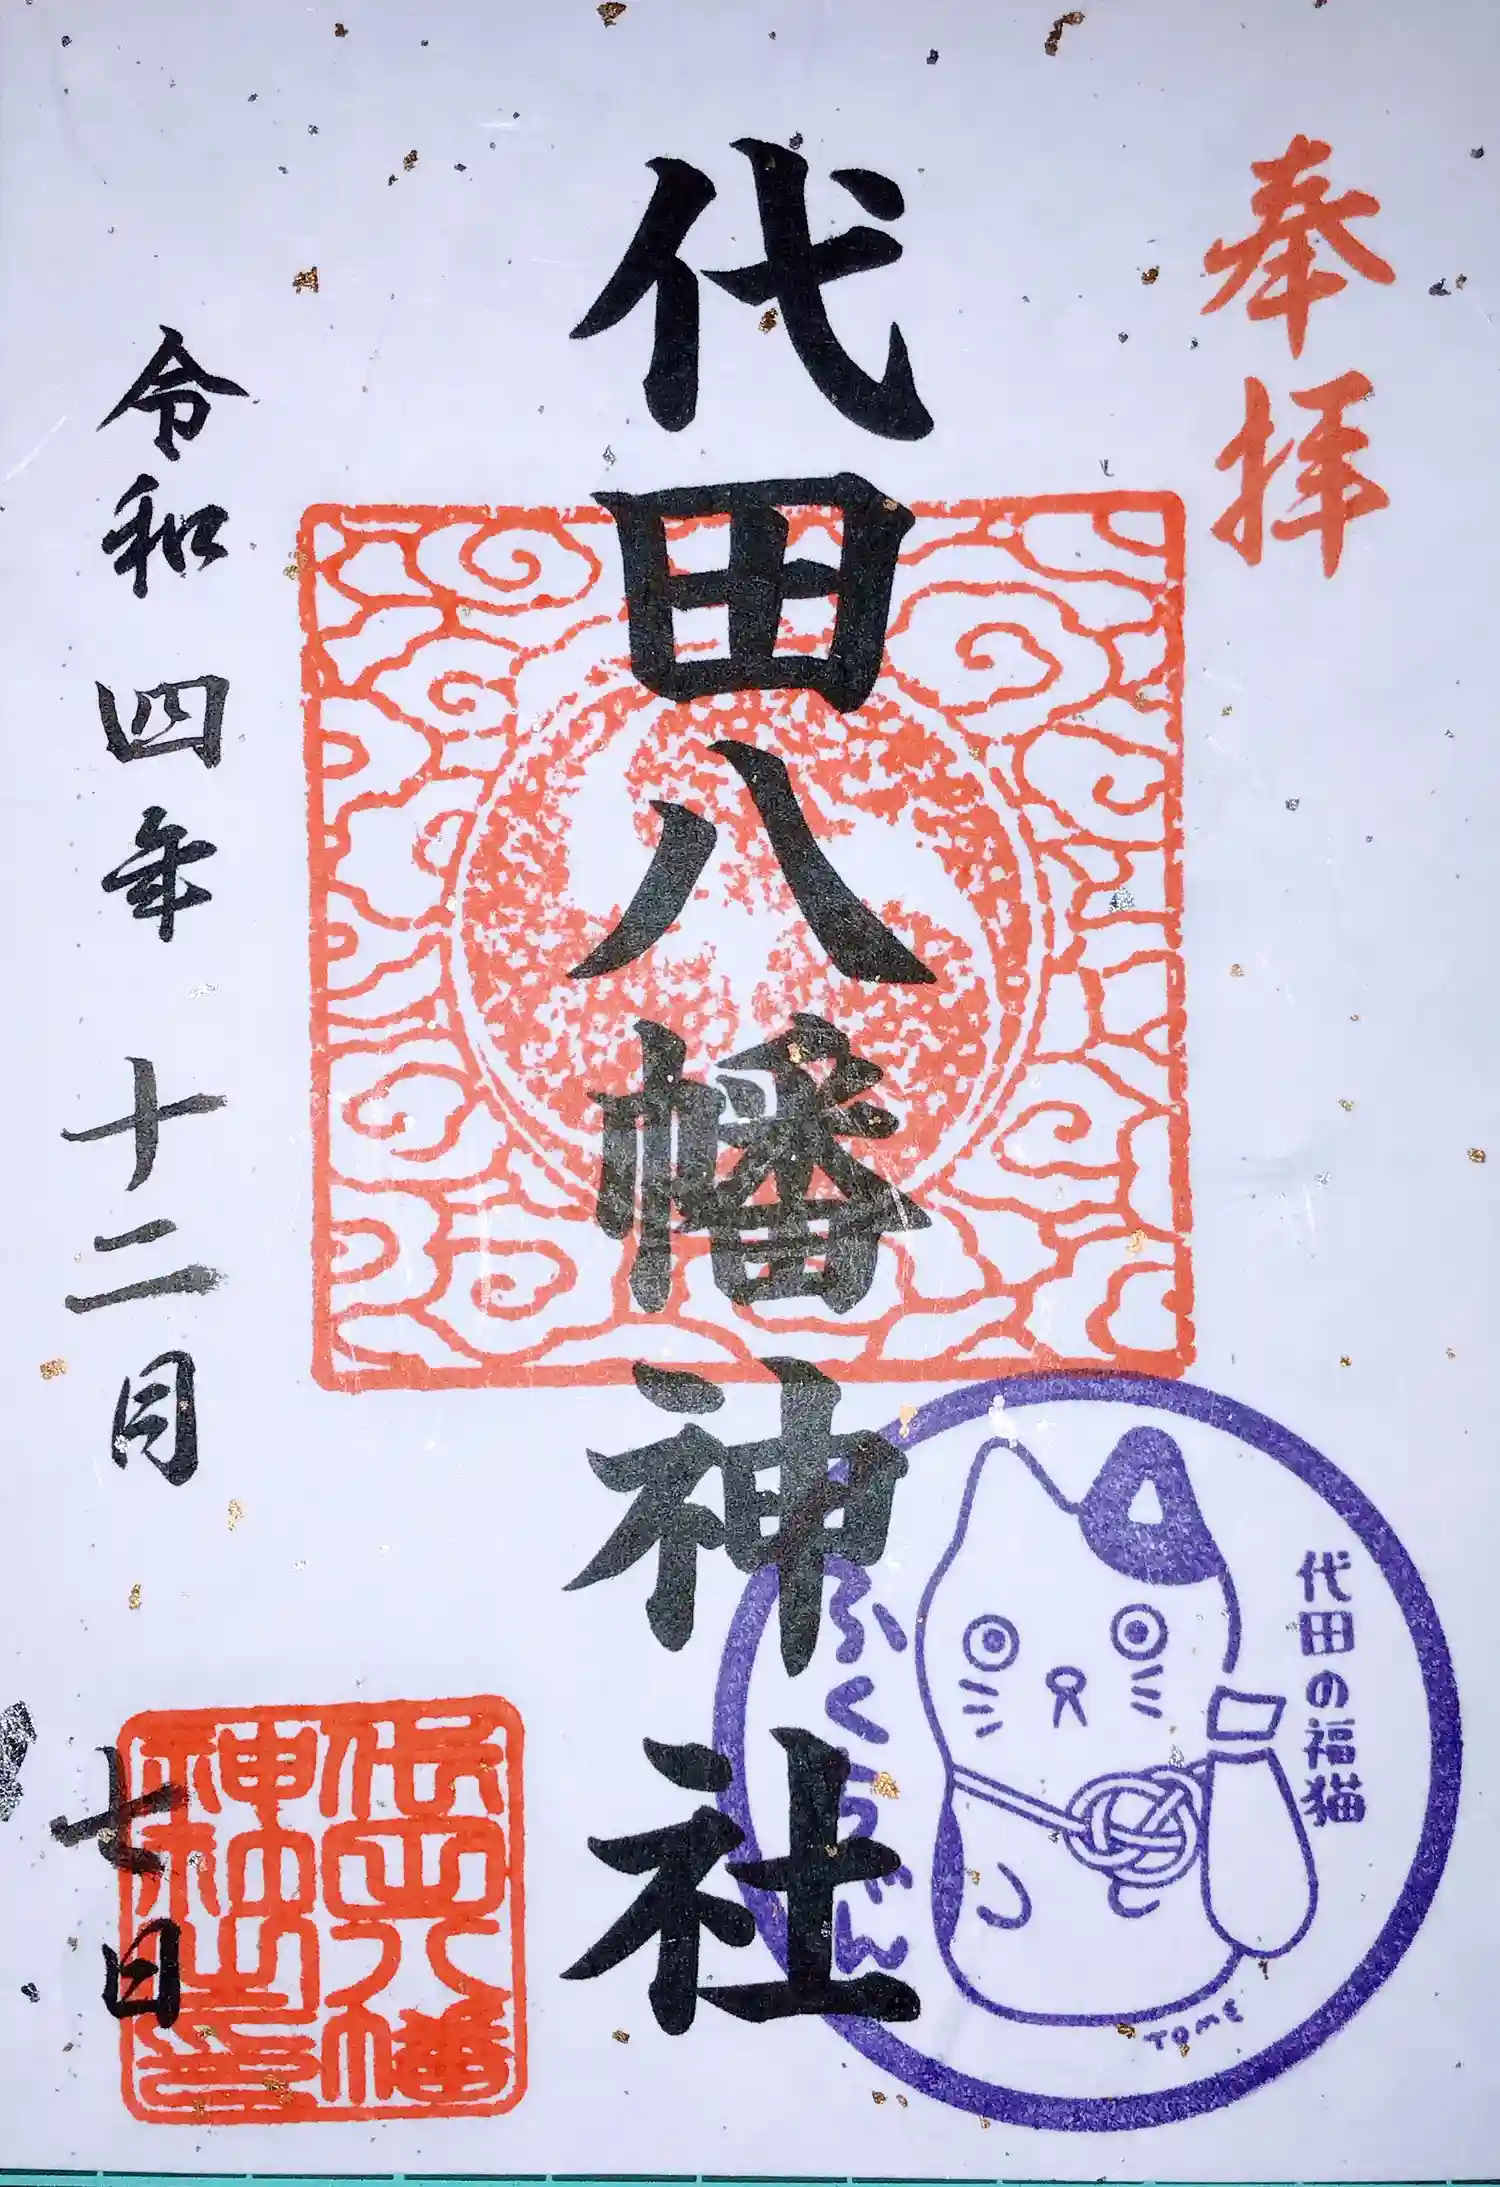 奉拝
代田八幡神社
令和四年 十二月 七日
代田の福猫
TOME
代田八幡
神社之印